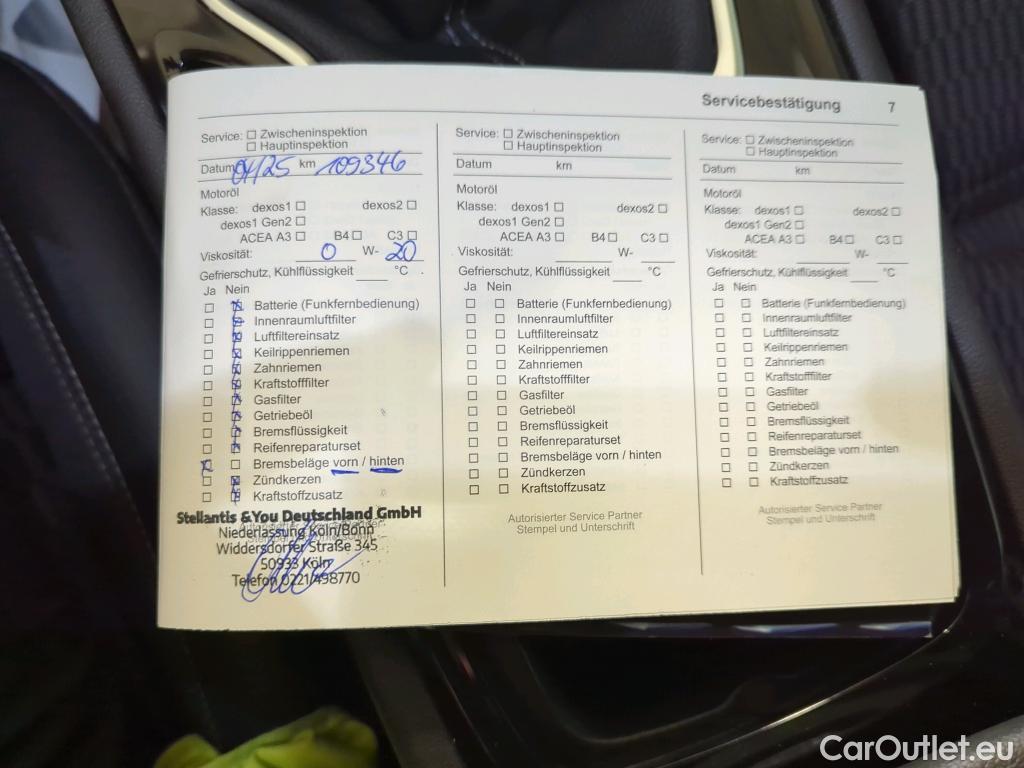 Servicebestätigung 7
Service: ☐ Zwischeninspektion
☐ Hauptinspektion
Datum 04/25 km 109346
Motoröl
Klasse: dexos1 ☐ dexos2 ☐
dexos1 Gen2 ☐
ACEA A3 ☐ B4 ☐ C3 ☐
Viskosität: 0 W- 20
Gefrierschutz, Kühlflüssigkeit °C
Ja Nein
☐ ☒ Batterie (Funkfernbedienung)
☐ ☒ Innenraumluftfilter
☐ ☒ Luftfiltereinsatz
☐ ☒ Keilrippenriemen
☐ ☒ Zahnriemen
☐ ☒ Kraftstofffilter
☐ ☒ Gasfilter
☐ ☒ Getriebeöl
☐ ☒ Bremsflüssigkeit
☐ ☒ Reifenreparaturset
☒ ☐ Bremsbeläge vorn / hinten
☐ ☒ Zündkerzen
☐ ☒ Kraftstoffzusatz
Stellantis &You Deutschland GmbH
Niederlassung Köln/Bonn
Widdersdorfer Straße 345
50933 Köln
Telefon 0221/498770
Service: ☐ Zwischeninspektion
☐ Hauptinspektion
Datum km
Motoröl
Klasse: dexos1 ☐ dexos2 ☐
dexos1 Gen2 ☐
ACEA A3 ☐ B4 ☐ C3 ☐
Viskosität: W-
Gefrierschutz, Kühlflüssigkeit °C
Ja Nein
☐ ☐ Batterie (Funkfernbedienung)
☐ ☐ Innenraumluftfilter
☐ ☐ Luftfiltereinsatz
☐ ☐ Keilrippenriemen
☐ ☐ Zahnriemen
☐ ☐ Kraftstofffilter
☐ ☐ Gasfilter
☐ ☐ Getriebeöl
☐ ☐ Bremsflüssigkeit
☐ ☐ Reifenreparaturset
☐ ☐ Bremsbeläge vorn / hinten
☐ ☐ Zündkerzen
☐ ☐ Kraftstoffzusatz
Autorisierter Service Partner
Stempel und Unterschrift
Service: ☐ Zwischeninspektion
☐ Hauptinspektion
Datum km
Motoröl
Klasse: dexos1 ☐ dexos2 ☐
dexos1 Gen2 ☐
ACEA A3 ☐ B4 ☐ C3 ☐
Viskosität: W-
Gefrierschutz, Kühlflüssigkeit °C
Ja Nein
☐ ☐ Batterie (Funkfernbedienung)
☐ ☐ Innenraumluftfilter
☐ ☐ Luftfiltereinsatz
☐ ☐ Keilrippenriemen
☐ ☐ Zahnriemen
☐ ☐ Kraftstofffilter
☐ ☐ Gasfilter
☐ ☐ Getriebeöl
☐ ☐ Bremsflüssigkeit
☐ ☐ Reifenreparaturset
☐ ☐ Bremsbeläge vorn / hinten
☐ ☐ Zündkerzen
☐ ☐ Kraftstoffzusatz
Autorisierter Service Partner
Stempel und Unterschrift
CarOutlet.eu